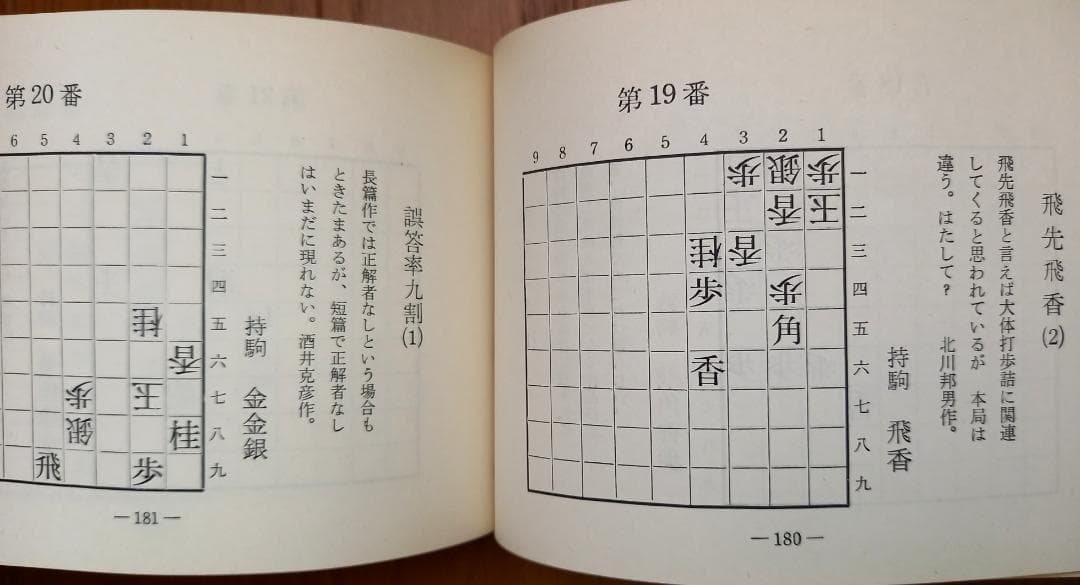 第19番
飛先飛香(2)
飛先飛香と言えば大体打歩詰に関連
してくると思われているが 本局は
違う。はたして? 北川邦男作。
持駒 飛香
9 8 7 6 5 4 3 2 1
歩 銀 歩 一
香 王 二
桂 香 三
歩 歩 四
角 五
香 六
七
八
九
―180―
第20番
誤答率九割(1)
長篇作では正解者なしという場合も
ときたまあるが、短篇で正解者なし
はいまだに現れない。酒井克彦作。
持駒 金金銀
6 5 4 3 2 1
一
二
三
四
桂 五
香 六
歩 王 七
銀 桂 八
飛 歩 九
―181―